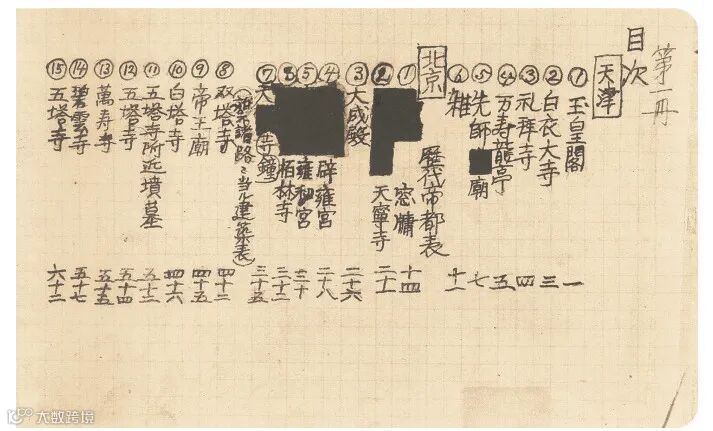 第一冊
目次
天津
① 玉皇閣 一
② 白衣大寺 三
③ 礼拜寺 四
④ 万寿龍亭 五
⑤ 先師 廟 七
⑥ 雜 十一
北京
歷代帝都表
① 窓牗 十四
② 天寧寺 二十一
③ 大成殿 二十六
④ 辟雍宮 二十八
⑤ 雍和宮 三十
栢林寺 三十二
⑦ 大 寺鐘) 三十五
ニ当ル建築表)
⑧ 双塔寺 四十二
⑨ 帝王廟 四十五
⑩ 白塔寺 四十六
⑪ 五塔寺附近墳墓 五十二
⑫ 五塔寺 五十四
⑬ 萬寿寺 五十五
⑭ 碧雲寺 五十七
⑮ 五塔寺 六十二
大数跨境